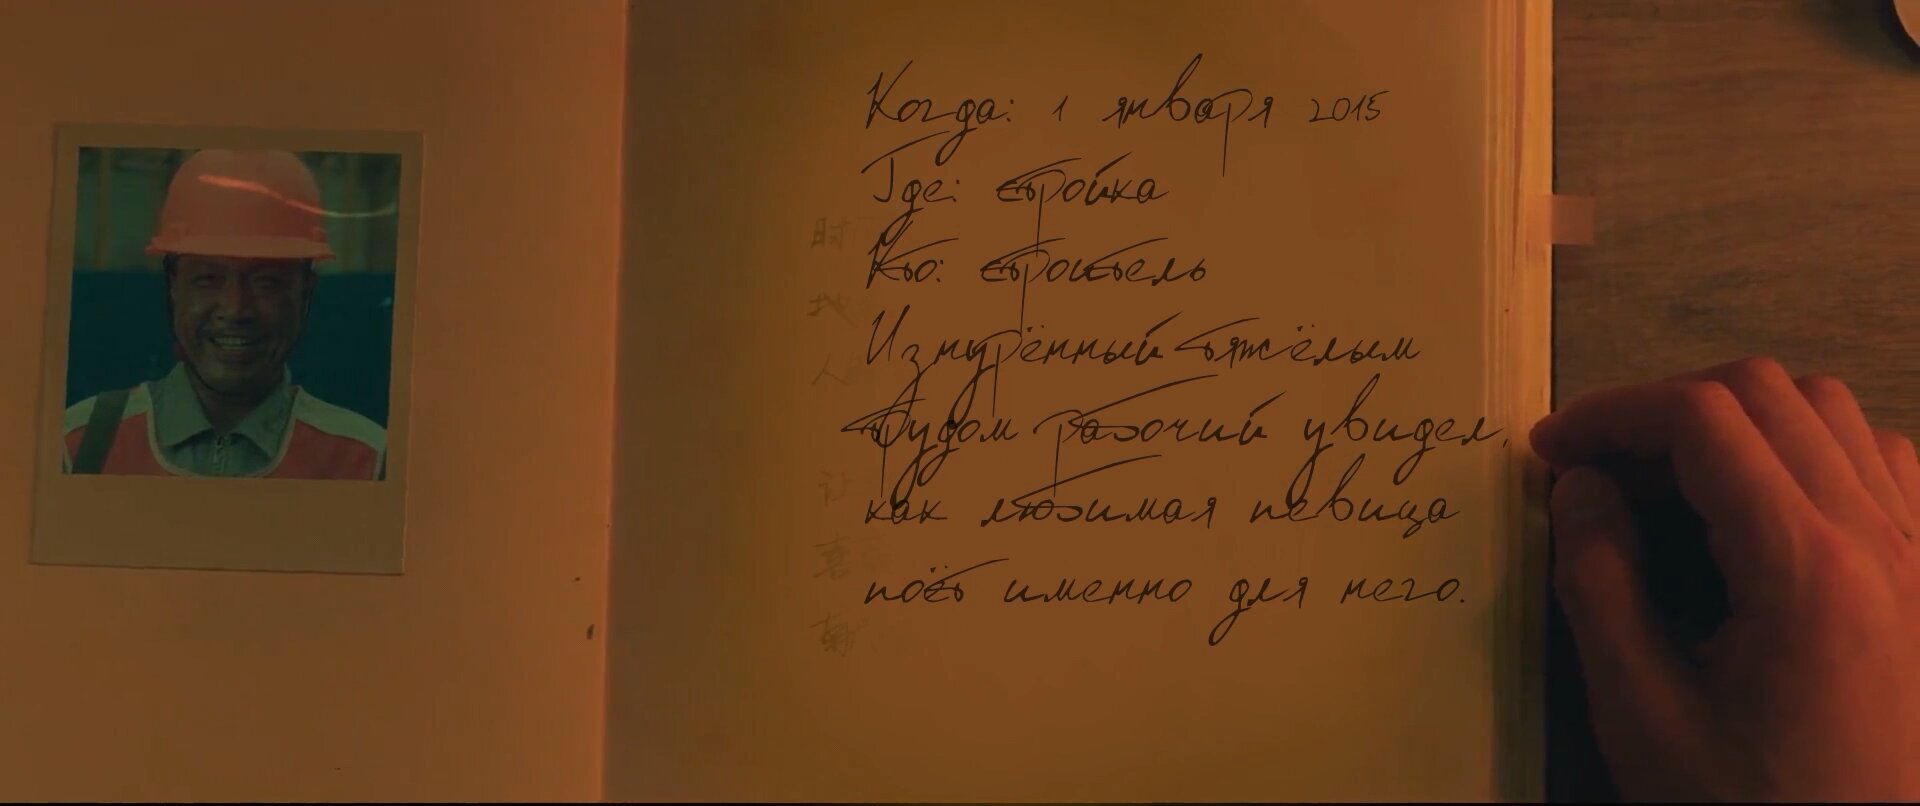 Когда: 1 января 2015
Где: стройка
Кто: строитель
Изнурённый тяжёлым
трудом рабочий увидел,
как любимая певица
поёт именно для него.
时
地
人
让
喜